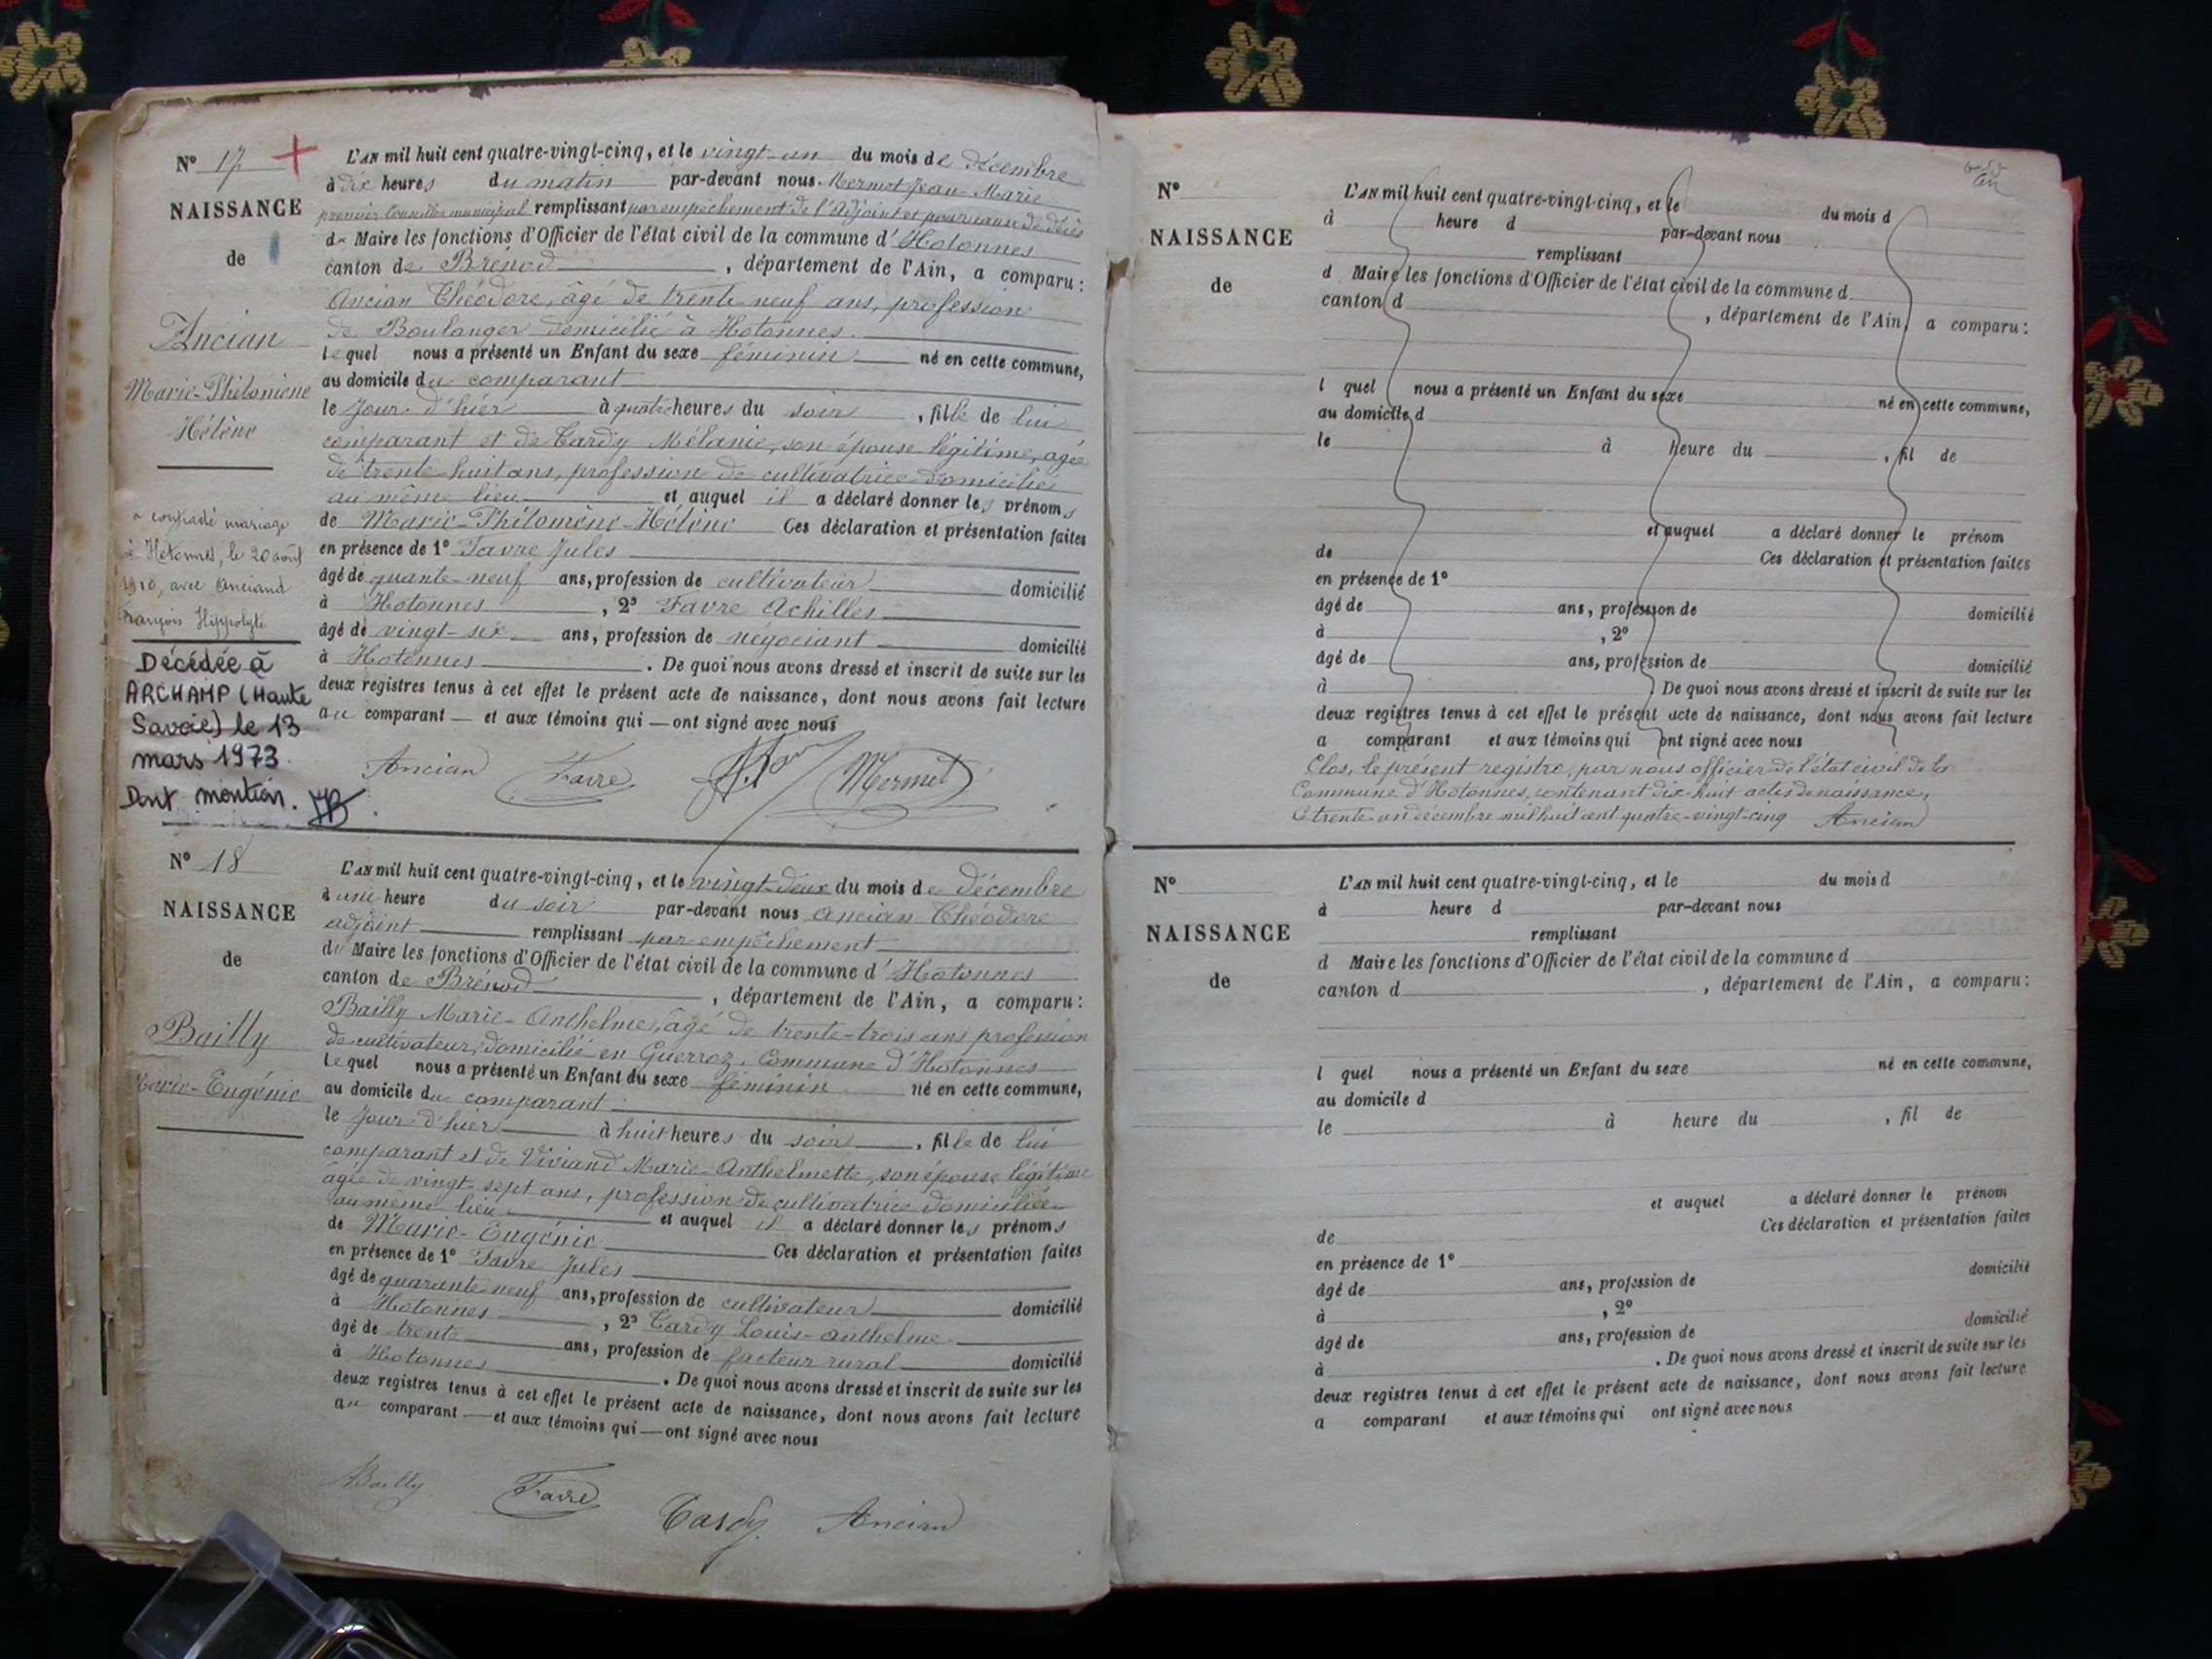 N° 17 +
NAISSANCE
de
Ancian
Marie-Philomène
Hélène
a contracté mariage
à Hotonnes, le 20 août
1910, avec Anciand
François Hippolyte
Décédée à
ARCHAMP (Haute
Savoie) le 13
mars 1973.
Dont mention.
L'AN mil huit cent quatre-vingt-cinq, et le vingt-un du mois de décembre
à dix heures du matin par-devant nous Mermet Jean-Marie
premier Conseiller municipal remplissant par empêchement de l'Adjoint et pour cause de décès
de Maire les fonctions d'Officier de l'état civil de la commune d'Hotonnes
canton de Brénod, département de l'Ain, a comparu:
Ancian Théodore, âgé de trente-neuf ans, profession
de Boulanger domicilié à Hotonnes.
lequel nous a présenté un Enfant du sexe féminin né en cette commune,
au domicile du comparant
le Jour d'hier à quatre heures du soir, fille de lui
comparant et de Tardy Mélanie, son épouse légitime, agée
de trente-huit ans, profession de cultivatrice domiciliée
au même lieu et auquel il a déclaré donner les prénoms
de Marie-Philomène-Hélène Ces déclaration et présentation faites
en présence de 1° Favre Jules
âgé de quante-neuf ans, profession de cultivateur domicilié
à Hotonnes, 2° Favre Achilles
âgé de vingt-six ans, profession de négociant domicilié
à Hotonnes. De quoi nous avons dressé et inscrit de suite sur les
deux registres tenus à cet effet le présent acte de naissance, dont nous avons fait lecture
au comparant — et aux témoins qui — ont signé avec nous
Ancian Favre Mermet
N° 18
NAISSANCE
de
Bailly
Marie-Eugénie
L'AN mil huit cent quatre-vingt-cinq, et le vingt-deux du mois de décembre
à une heure du soir par-devant nous Ancian Théodore
adjoint remplissant par empêchement
du Maire les fonctions d'Officier de l'état civil de la commune d'Hotonnes
canton de Brénod, département de l'Ain, a comparu:
Bailly Marie-Anthelme, âgé de trente-trois ans profession
de cultivateur, domicilié en Guerroz, Commune d'Hotonnes
lequel nous a présenté un Enfant du sexe féminin né en cette commune,
au domicile du comparant
le Jour d'hier à huit heures du soir, fille de lui
comparant et de Viviand Marie-Anthelmette, son épouse légitime
âgée de vingt-sept ans, profession de cultivatrice domiciliée
au même lieu et auquel il a déclaré donner les prénoms
de Marie-Eugénie Ces déclaration et présentation faites
en présence de 1° Favre Jules
âgé de quarante-neuf ans, profession de cultivateur domicilié
à Hotonnes, 2° Tardy Louis-anthelme
âgé de trente ans, profession de facteur rural domicilié
à Hotonnes. De quoi nous avons dressé et inscrit de suite sur les
deux registres tenus à cet effet le présent acte de naissance, dont nous avons fait lecture
au comparant — et aux témoins qui — ont signé avec nous
Bailly Favre Tardy Ancian
N°
NAISSANCE
de
L'AN mil huit cent quatre-vingt-cinq, et le du mois d
à heure d par-devant nous
remplissant
d Maire les fonctions d'Officier de l'état civil de la commune d
canton d , département de l'Ain, a comparu:
l quel nous a présenté un Enfant du sexe né en cette commune,
au domicile d
le à heure du , fil de
et auquel a déclaré donner le prénom
de Ces déclaration et présentation faites
en présence de 1°
âgé de ans, profession de domicilié
à , 2°
âgé de ans, profession de domicilié
à . De quoi nous avons dressé et inscrit de suite sur les
deux registres tenus à cet effet le présent acte de naissance, dont nous avons fait lecture
a comparant et aux témoins qui ont signé avec nous
Clos, le présent registre, par nous officier de l'état civil de la
Commune d'Hotonnes, contenant dix-huit actes de naissance,
Ce trente-un décembre mil huit cent quatre-vingt-cinq Ancian
N°
NAISSANCE
de
L'AN mil huit cent quatre-vingt-cinq, et le du mois d
à heure d par-devant nous
remplissant
d Maire les fonctions d'Officier de l'état civil de la commune d
canton d , département de l'Ain, a comparu:
l quel nous a présenté un Enfant du sexe né en cette commune,
au domicile d
le à heure du , fil de
et auquel a déclaré donner le prénom
de Ces déclaration et présentation faites
en présence de 1°
âgé de ans, profession de domicilié
à , 2°
âgé de ans, profession de domicilié
à . De quoi nous avons dressé et inscrit de suite sur les
deux registres tenus à cet effet le présent acte de naissance, dont nous avons fait lecture
a comparant et aux témoins qui ont signé avec nous